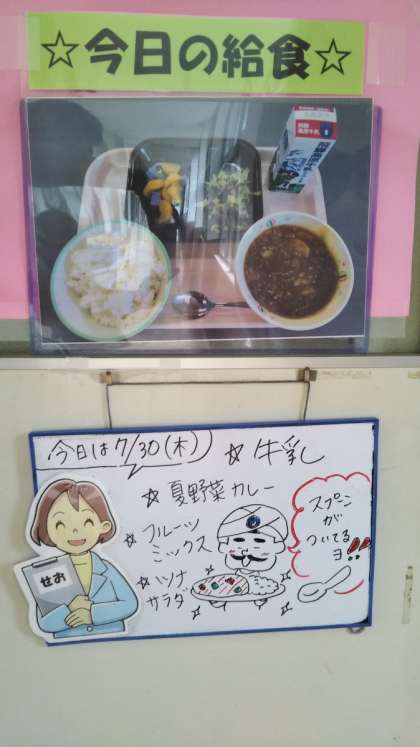 ☆今日の給食☆
今日は7/30(木)
☆牛乳
☆夏野菜カレー
☆フルーツ
ミックス
☆ツナ
サラダ
スプーン
が
ついてる
ヨ!!
せお